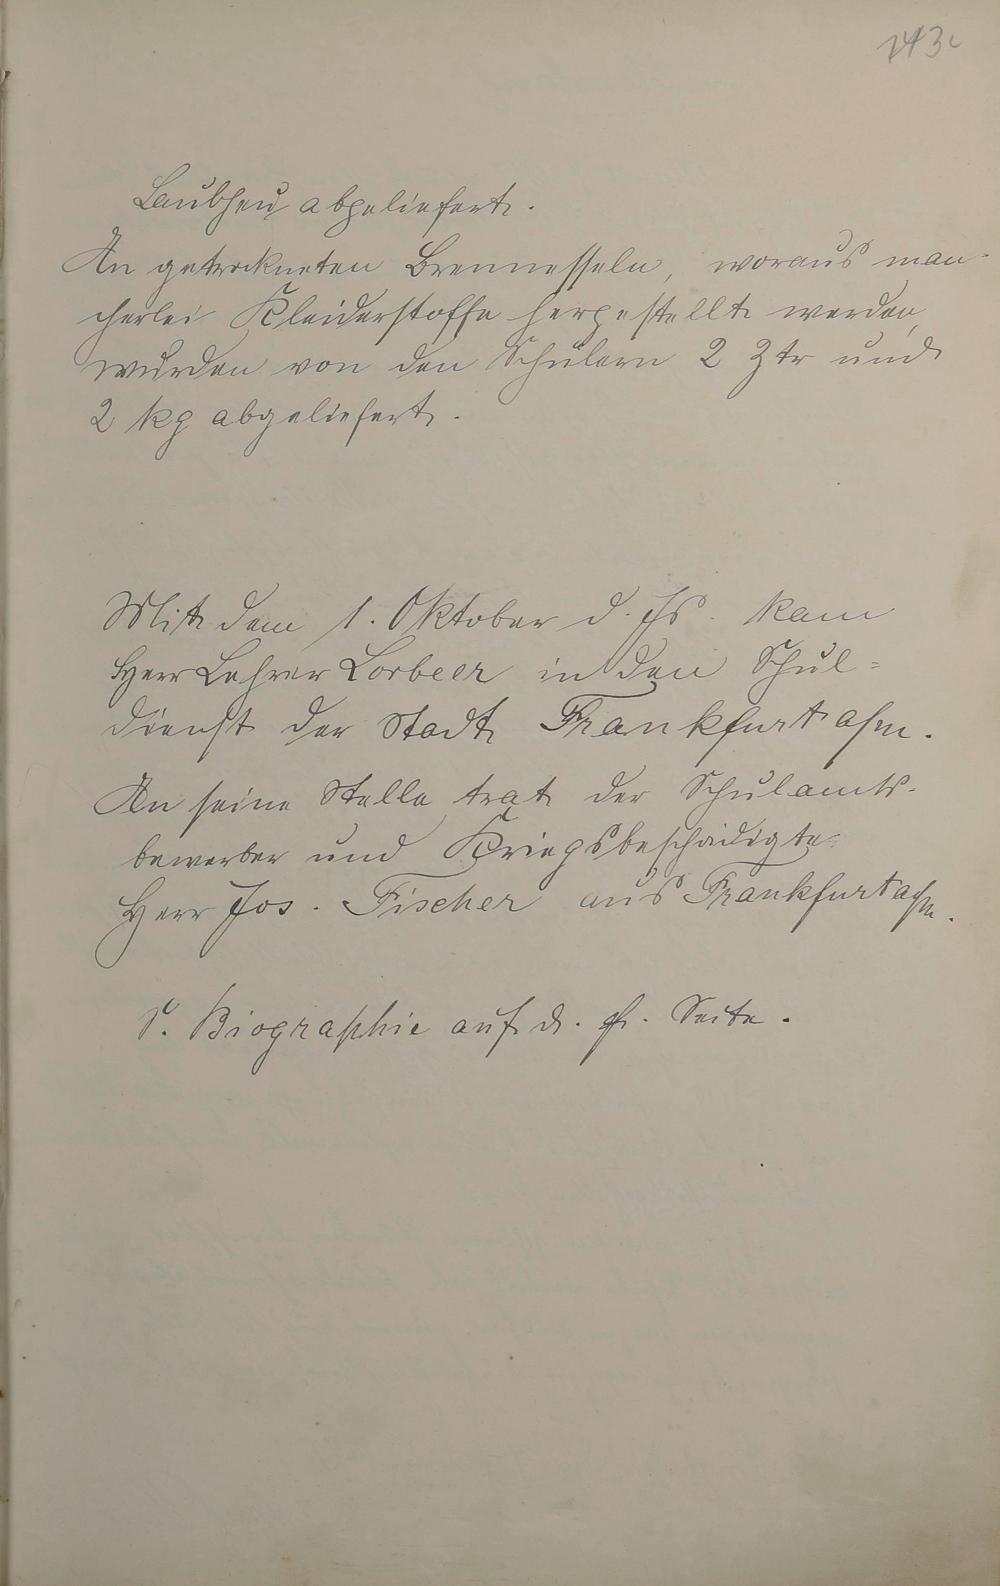 143
Laubheu abgeliefert.
An getrockneten Brennesseln, woraus man-
cherlei Kleiderstoffe hergestellt werden,
wurden von den Schülern 2 Ztr und
2 kg abgeliefert.
Mit dem 1. Oktober d. Js. kam
Herr Lehrer Lorbeer in den Schul=
dienst der Stadt Frankfurt a/m.
An seine Stelle trat der Schulamts-
bewerber und Kriegsbeschädigte
Herr Jos. Fischer aus Frankfurt a/m.
S. Biographie auf d. Seite.